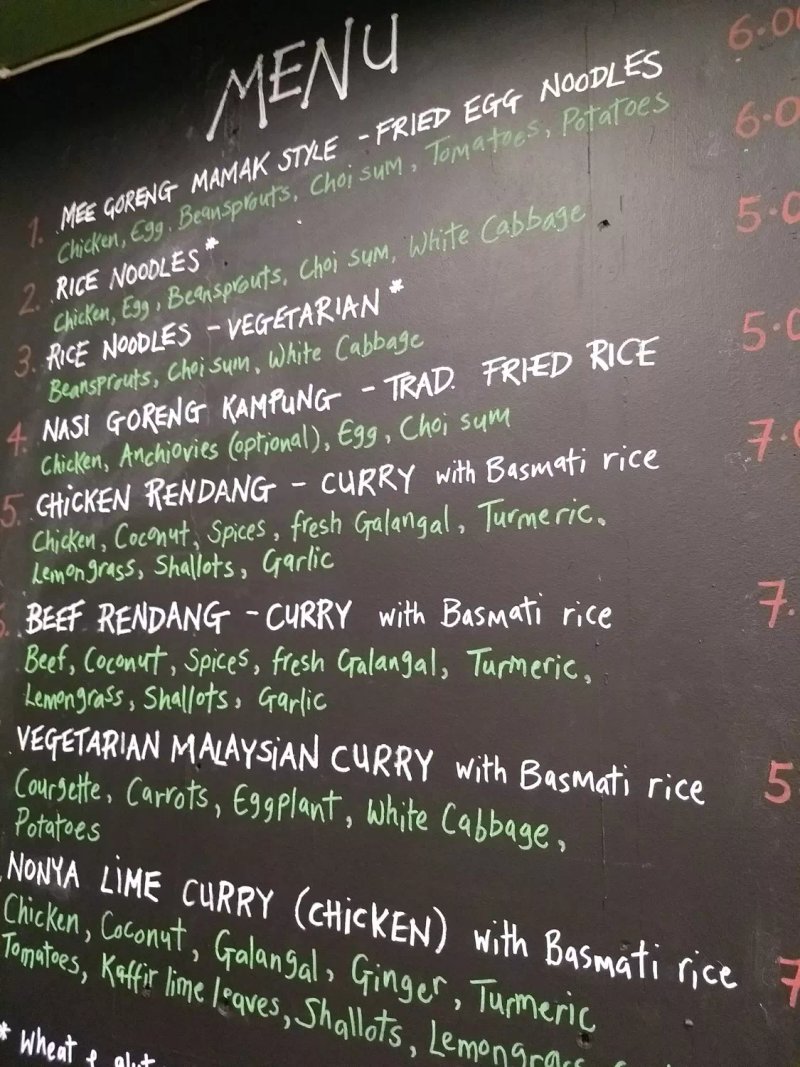 MENU
1. MEE GORENG MAMAK STYLE - FRIED EGG NOODLES 6.0
Chicken, Egg, Beansprouts, Choi sum, Tomatoes, Potatoes
2. RICE NOODLES* 6.0
Chicken, Egg, Beansprouts, Choi sum, White Cabbage
3. RICE NOODLES - VEGETARIAN* 5.0
Beansprouts, Choi sum, White Cabbage
4. NASI GORENG KAMPUNG - TRAD. FRIED RICE 5.0
Chicken, Anchiovies (optional), Egg, Choi sum
5. CHICKEN RENDANG - CURRY with Basmati rice 7.
Chicken, Coconut, Spices, fresh Galangal, Turmeric,
Lemongrass, Shallots, Garlic
BEEF RENDANG - CURRY with Basmati rice 7.
Beef, Coconut, Spices, fresh Galangal, Turmeric,
Lemongrass, Shallots, Garlic
VEGETARIAN MALAYSIAN CURRY with Basmati rice 5
Courgette, Carrots, Eggplant, White Cabbage,
Potatoes
NONYA LIME CURRY (CHICKEN) with Basmati rice 7
Chicken, Coconut, Galangal, Ginger, Turmeric
Tomatoes, Kaffir lime leaves, Shallots, Lemongrass
* Wheat &